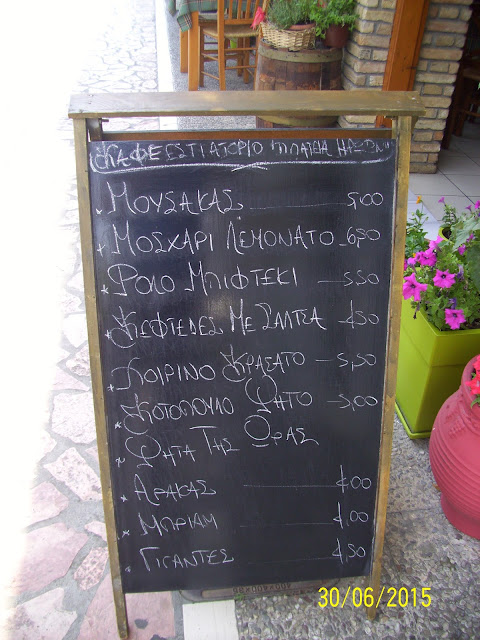 ΚΑΦΕΕΣΤΙΑΤΟΡΙΟ ΠΛΑΤΕΙΑ
ΜΟΥΣΑΚΑΣ 5,00
ΜΟΣΧΑΡΙ ΛΕΜΟΝΑΤΟ 6,50
ΡΟΛΟ ΜΠΙΦΤΕΚΙ 5,50
ΚΕΦΤΕΔΕΣ ΜΕ ΣΑΛΤΣΑ 4,50
ΧΟΙΡΙΝΟ ΚΡΑΣΑΤΟ 5,50
ΚΟΤΟΠΟΥΛΟ ΨΗΤΟ 5,00
ΨΗΤΑ ΤΗΣ ΩΡΑΣ
ΑΡΑΚΑΣ 4,00
ΜΠΡΙΑΜ 4,00
ΓΙΓΑΝΤΕΣ 4,50
30/06/2015